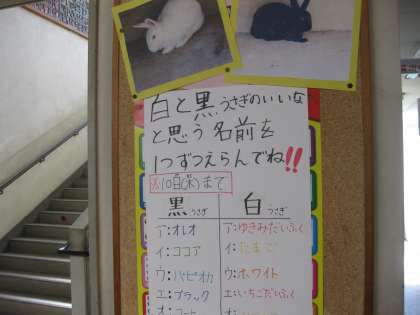 白と黒うさぎのいいな
と思う名前を
1つずつえらんでね!!
10日(木)まで
黒うさぎ 白うさぎ
ア:オレオ ア:ゆきみだいふく
イ:ココア イ:たまご
ウ:タピオカ ウ:ホワイト
エ:ブラック エ:いちごだいふく